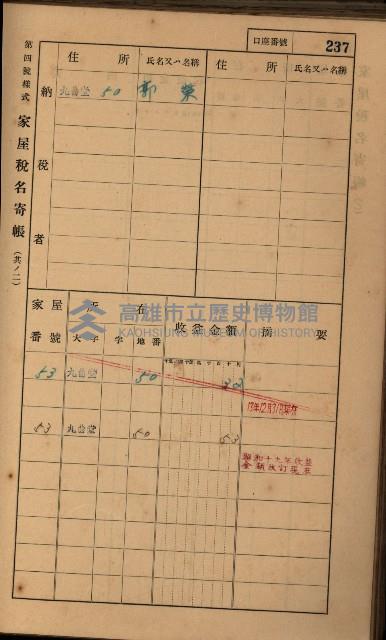 口座番號 237
第四號樣式 家屋稅名寄帳 (共ノ二)
納稅者
住所 氏名又ハ名稱 住所 氏名又ハ名稱
九曲堂 50 郭榮
家屋番號 所在 收益金額 摘要
大字 字 地番
53 九曲堂 50 32
高雄市立歷史博物館
KAOHSIUNG MUSEUM OF HISTORY
53 九曲堂 50 53
昭和十九年收益
金額改訂